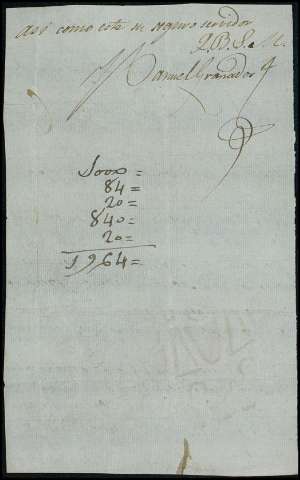 asi como este su seguro servidor
Q.B.S.M.
Manuel Granados
1000=
84=
20=
840=
20=
1964=